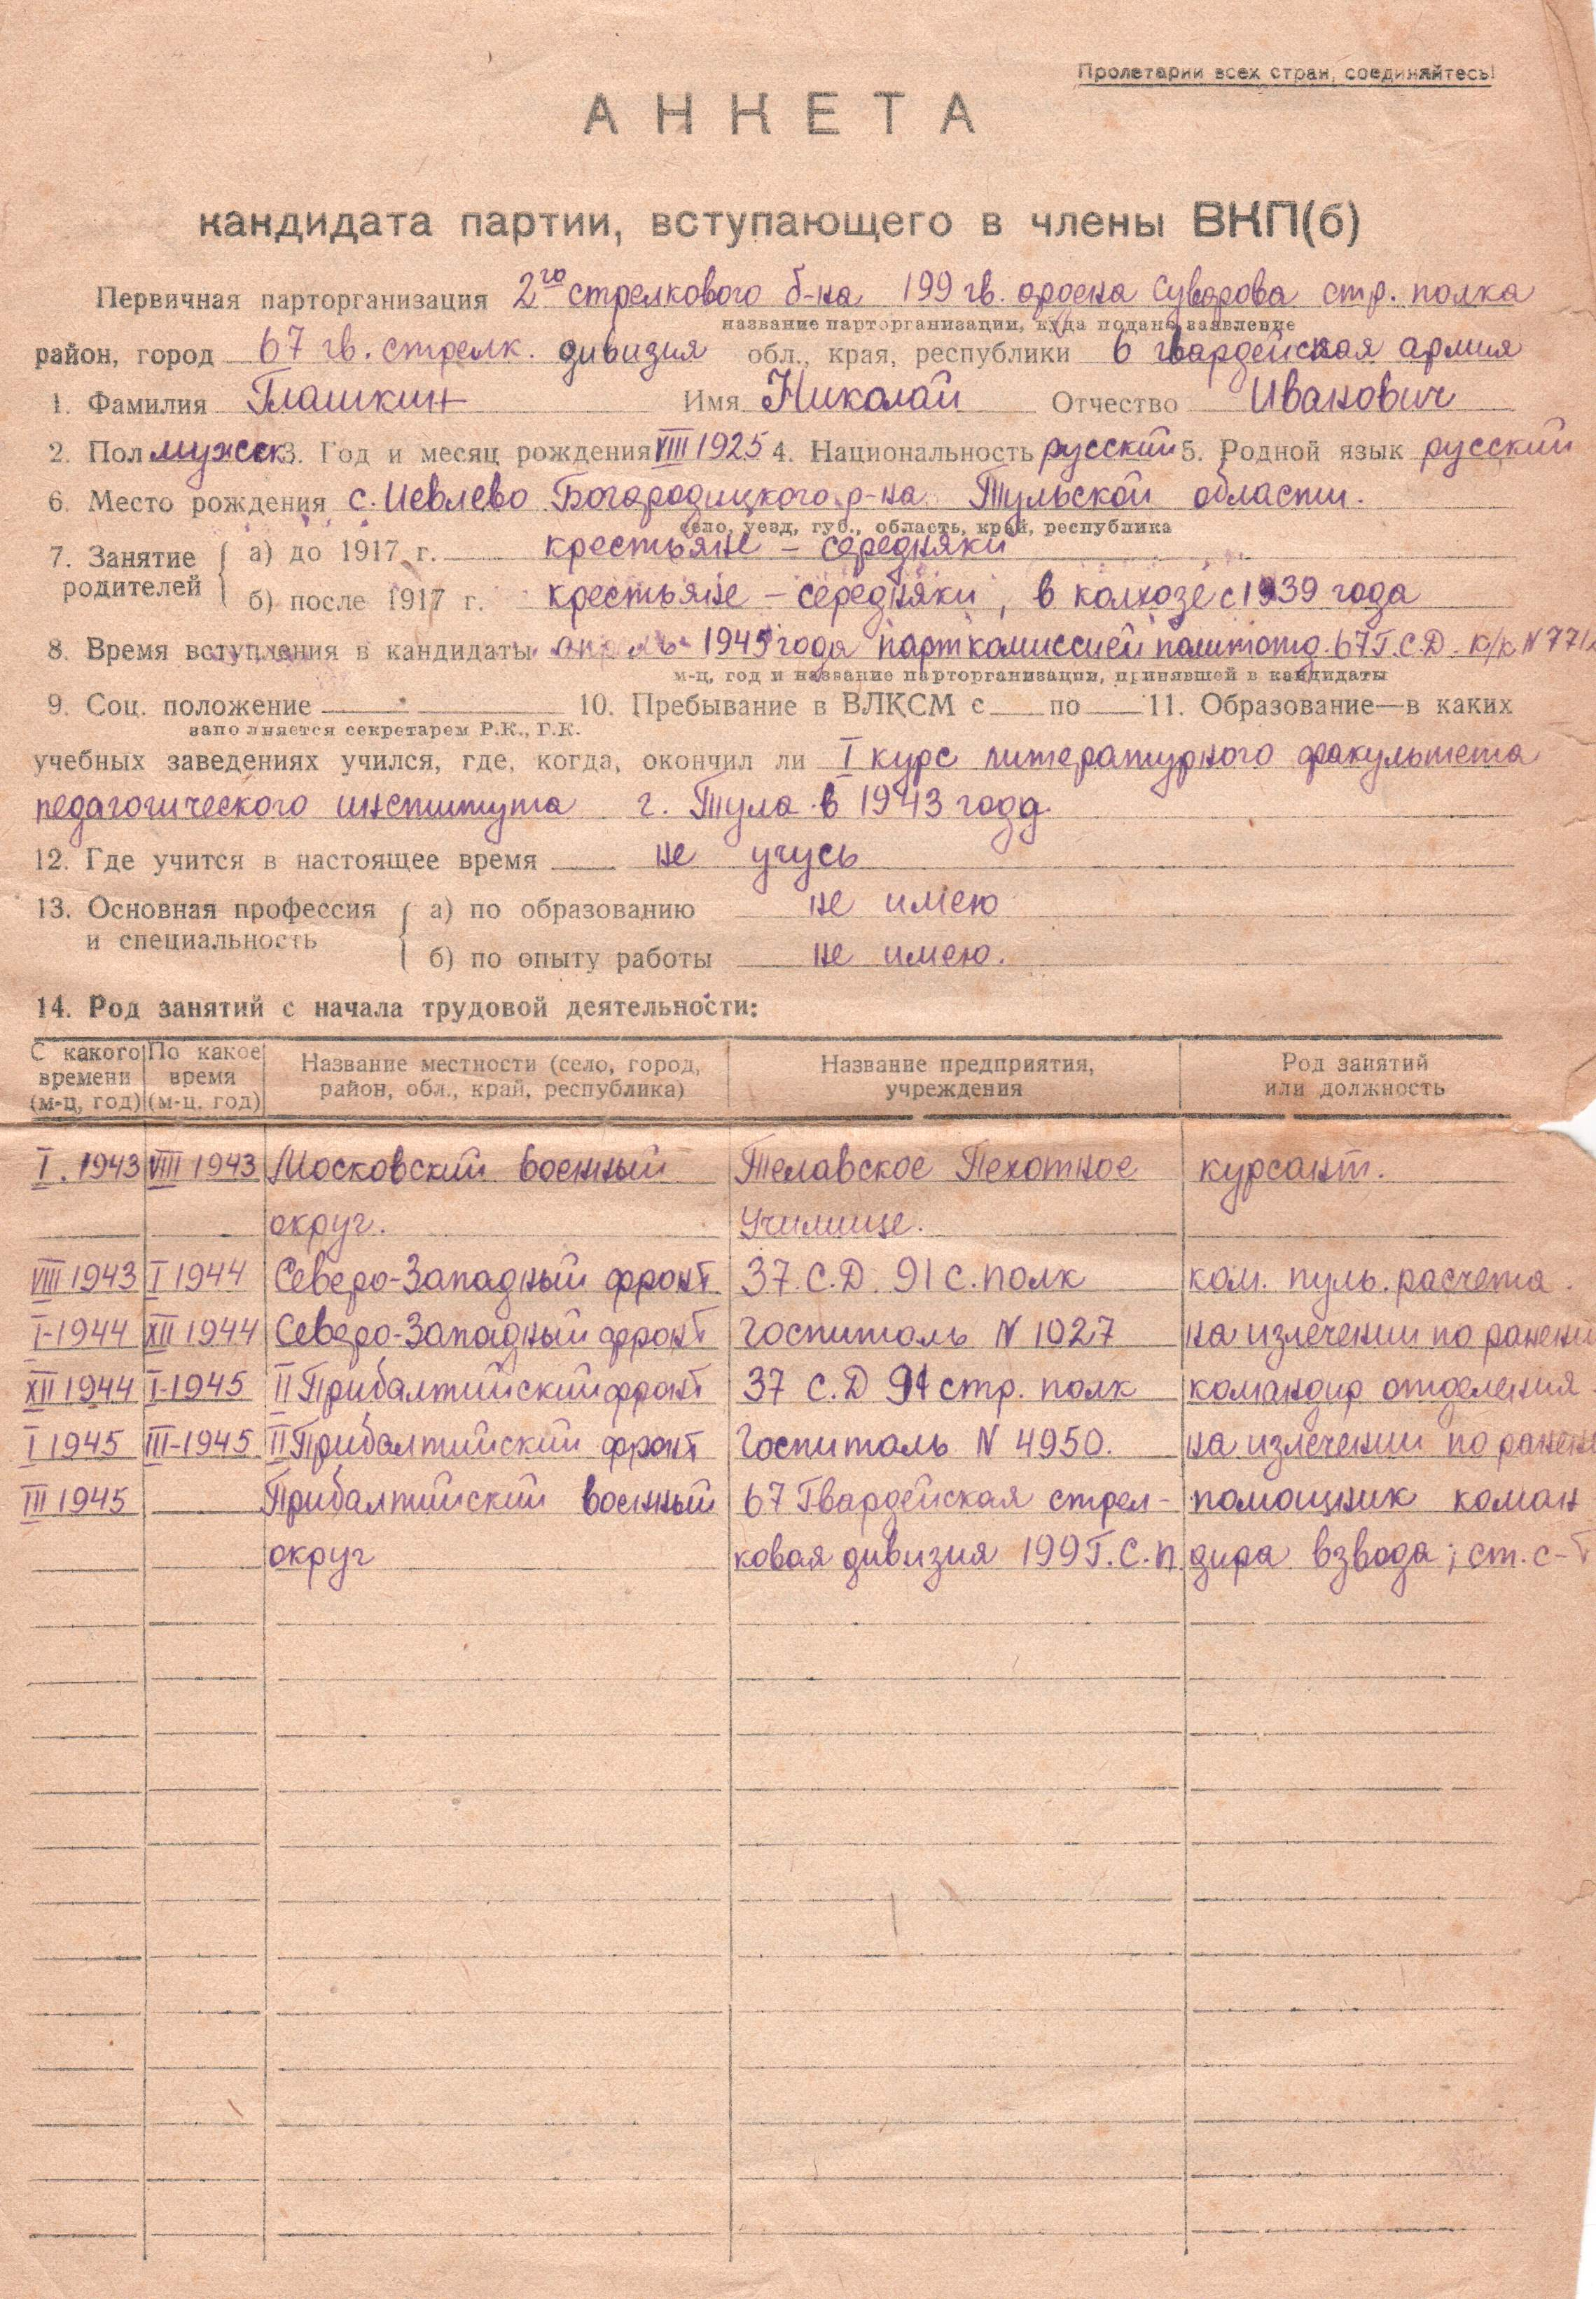 Пролетарии всех стран, соединяйтесь!
АНКЕТА
кандидата партии, вступающего в члены ВКП(б)
Первичная парторганизация 2го стрелкового б-на 199 гв. ордена Суворова стр. полка
название парторганизации, куда подано заявление
район, город 67 гв. стрелк. дивизия обл., края, республики 6 гвардейская армия
1. Фамилия Глашкин Имя Николай Отчество Иванович
2. Пол мужск 3. Год и месяц рождения VIII 1925 4. Национальность русский 5. Родной язык русский
6. Место рождения с. Иевлево Богородицкого р-на Тульской области.
село, уезд, губ., область, край, республика
7. Занятие родителей
а) до 1917 г. крестьяне – середняки
б) после 1917 г. крестьяне – середняки, в колхозе с 1939 года
8. Время вступления в кандидаты апрель 1945 года парткомиссией политотд. 67 Г.С.Д. к/к N 771
м-ц, год и название парторганизации, принявшей в кандидаты
9. Соц. положение 10. Пребывание в ВЛКСМ с по 11. Образование—в каких
заполняется секретарем Р.К., Г.К.
учебных заведениях учился, где, когда, окончил ли I курс литературного факультета
педагогического института г. Тула в 1943 году.
12. Где учится в настоящее время не учусь
13. Основная профессия и специальность
а) по образованию не имею
б) по опыту работы не имею.
14. Род занятий с начала трудовой деятельности:
С какого времени (м-ц, год) По какое время (м-ц, год) Название местности (село, город, район, обл., край, республика) Название предприятия, учреждения Род занятий или должность
I. 1943 VIII 1943 Московский военный Телавское Пехотное курсант.
округ. Училище.
VIII 1943 I 1944 Северо-Западный фронт 37 С.Д. 91 с. полк ком. пуль. расчета.
I-1944 XII 1944 Северо-Западный фронт Госпиталь N 1027 на излечении по ранени
XII 1944 I-1945 II Прибалтийский фронт 37 С.Д 91 стр. полк командир отделения
I 1945 III-1945 II Прибалтийский фронт Госпиталь N 4950. на излечении по ранен
III 1945 Прибалтийский военный 67 Гвардейская стрел- помощник коман
округ ковая дивизия 199 Г.С.П. дира взвода; ст. с-т